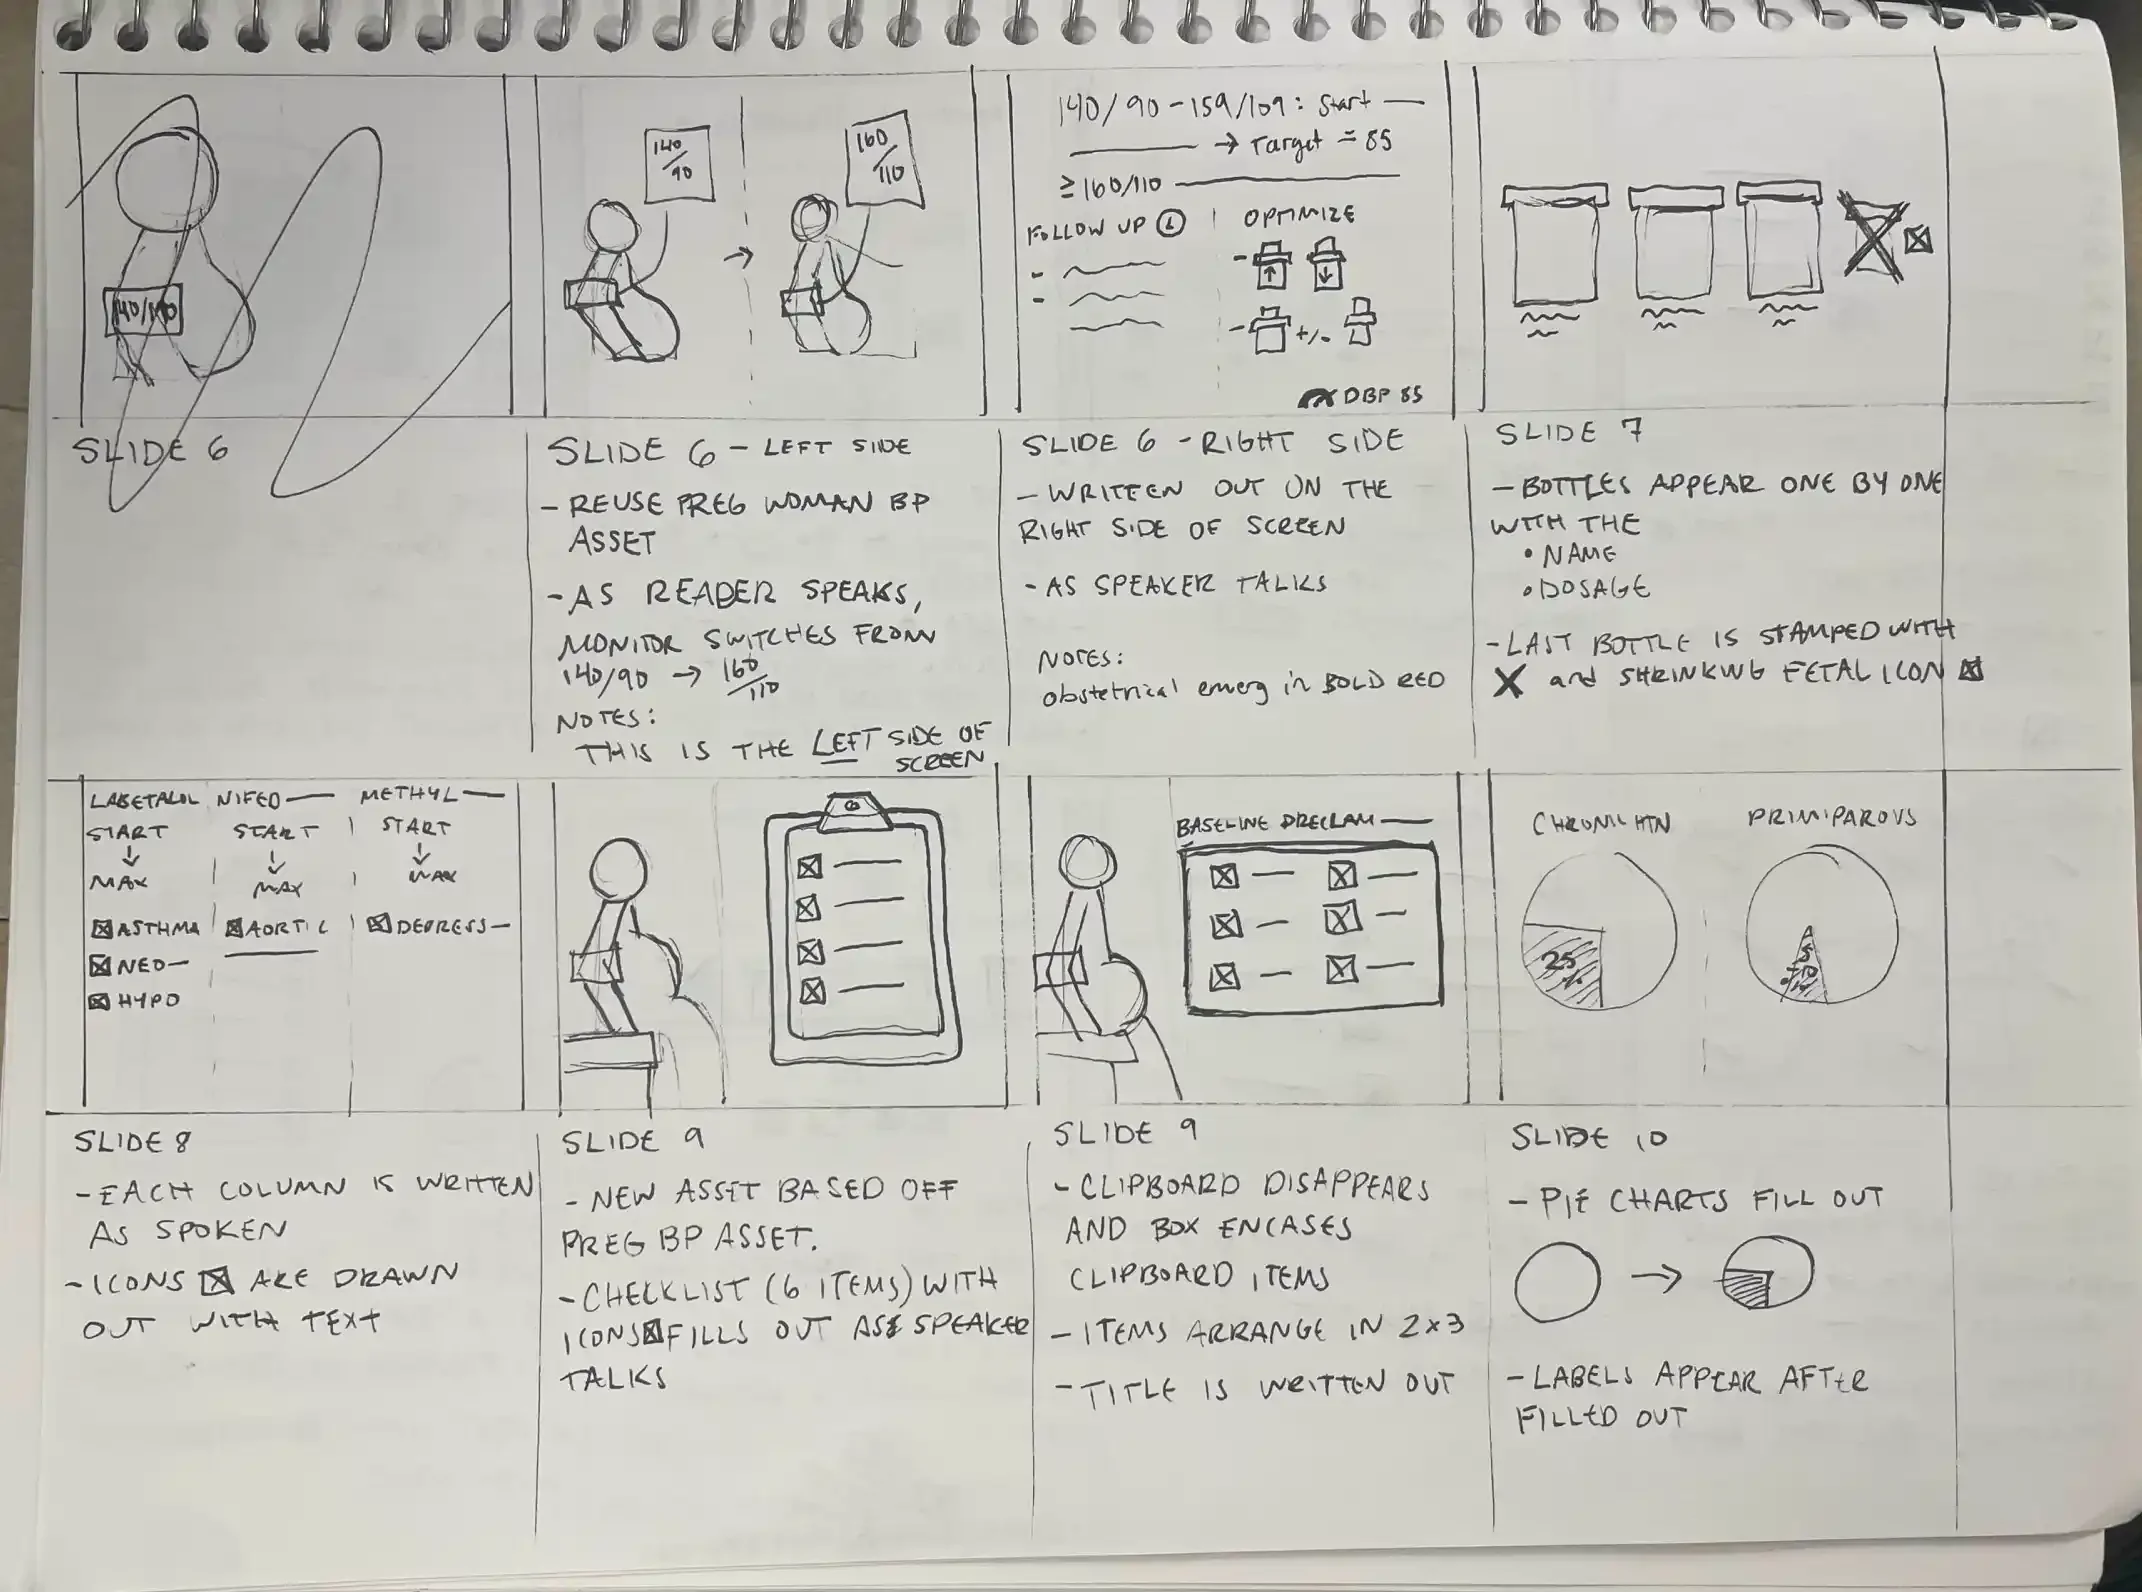 140/190
SLIDE 6
140/90
160/110
SLIDE 6 - LEFT SIDE
- REUSE PREG WOMAN BP
ASSET
- AS READER SPEAKS,
MONITOR SWITCHES FROM
140/90 → 160/110
NOTES:
THIS IS THE LEFT SIDE OF
SCREEN
140/90 - 159/109: Start —
→ Target = 85
≥160/110
FOLLOW UP
OPTIMIZE
+/-
DBP 85
SLIDE 6 - RIGHT SIDE
- WRITTEN OUT ON THE
RIGHT SIDE OF SCREEN
- AS SPEAKER TALKS
NOTES:
obstetrical emerg in BOLD RED
SLIDE 7
- BOTTLES APPEAR ONE BY ONE
WITH THE
• NAME
• DOSAGE
- LAST BOTTLE IS STAMPED WITH
X and SHRINKING FETAL ICON
LABETALOL NIFED— METHYL—
START START START
↓ ↓ ↓
MAX MAX MAX
ASTHMA AORTIC DEPRESS—
NEO—
HYPO
SLIDE 8
- EACH COLUMN IS WRITTEN
AS SPOKEN
- ICONS ARE DRAWN
OUT WITH TEXT
SLIDE 9
- NEW ASSET BASED OFF
PREG BP ASSET.
- CHECKLIST (6 ITEMS) WITH
ICONS FILLS OUT AS SPEAKER
TALKS
BASELINE PRECLAM—
SLIDE 9
- CLIPBOARD DISAPPEARS
AND BOX ENCASES
CLIPBOARD ITEMS
- ITEMS ARRANGE IN 2x3
- TITLE IS WRITTEN OUT
CHRONIC HTN
PRIMIPAROUS
25%
SLIDE 10
- PIE CHARTS FILL OUT
→
- LABELS APPEAR AFTER
FILLED OUT